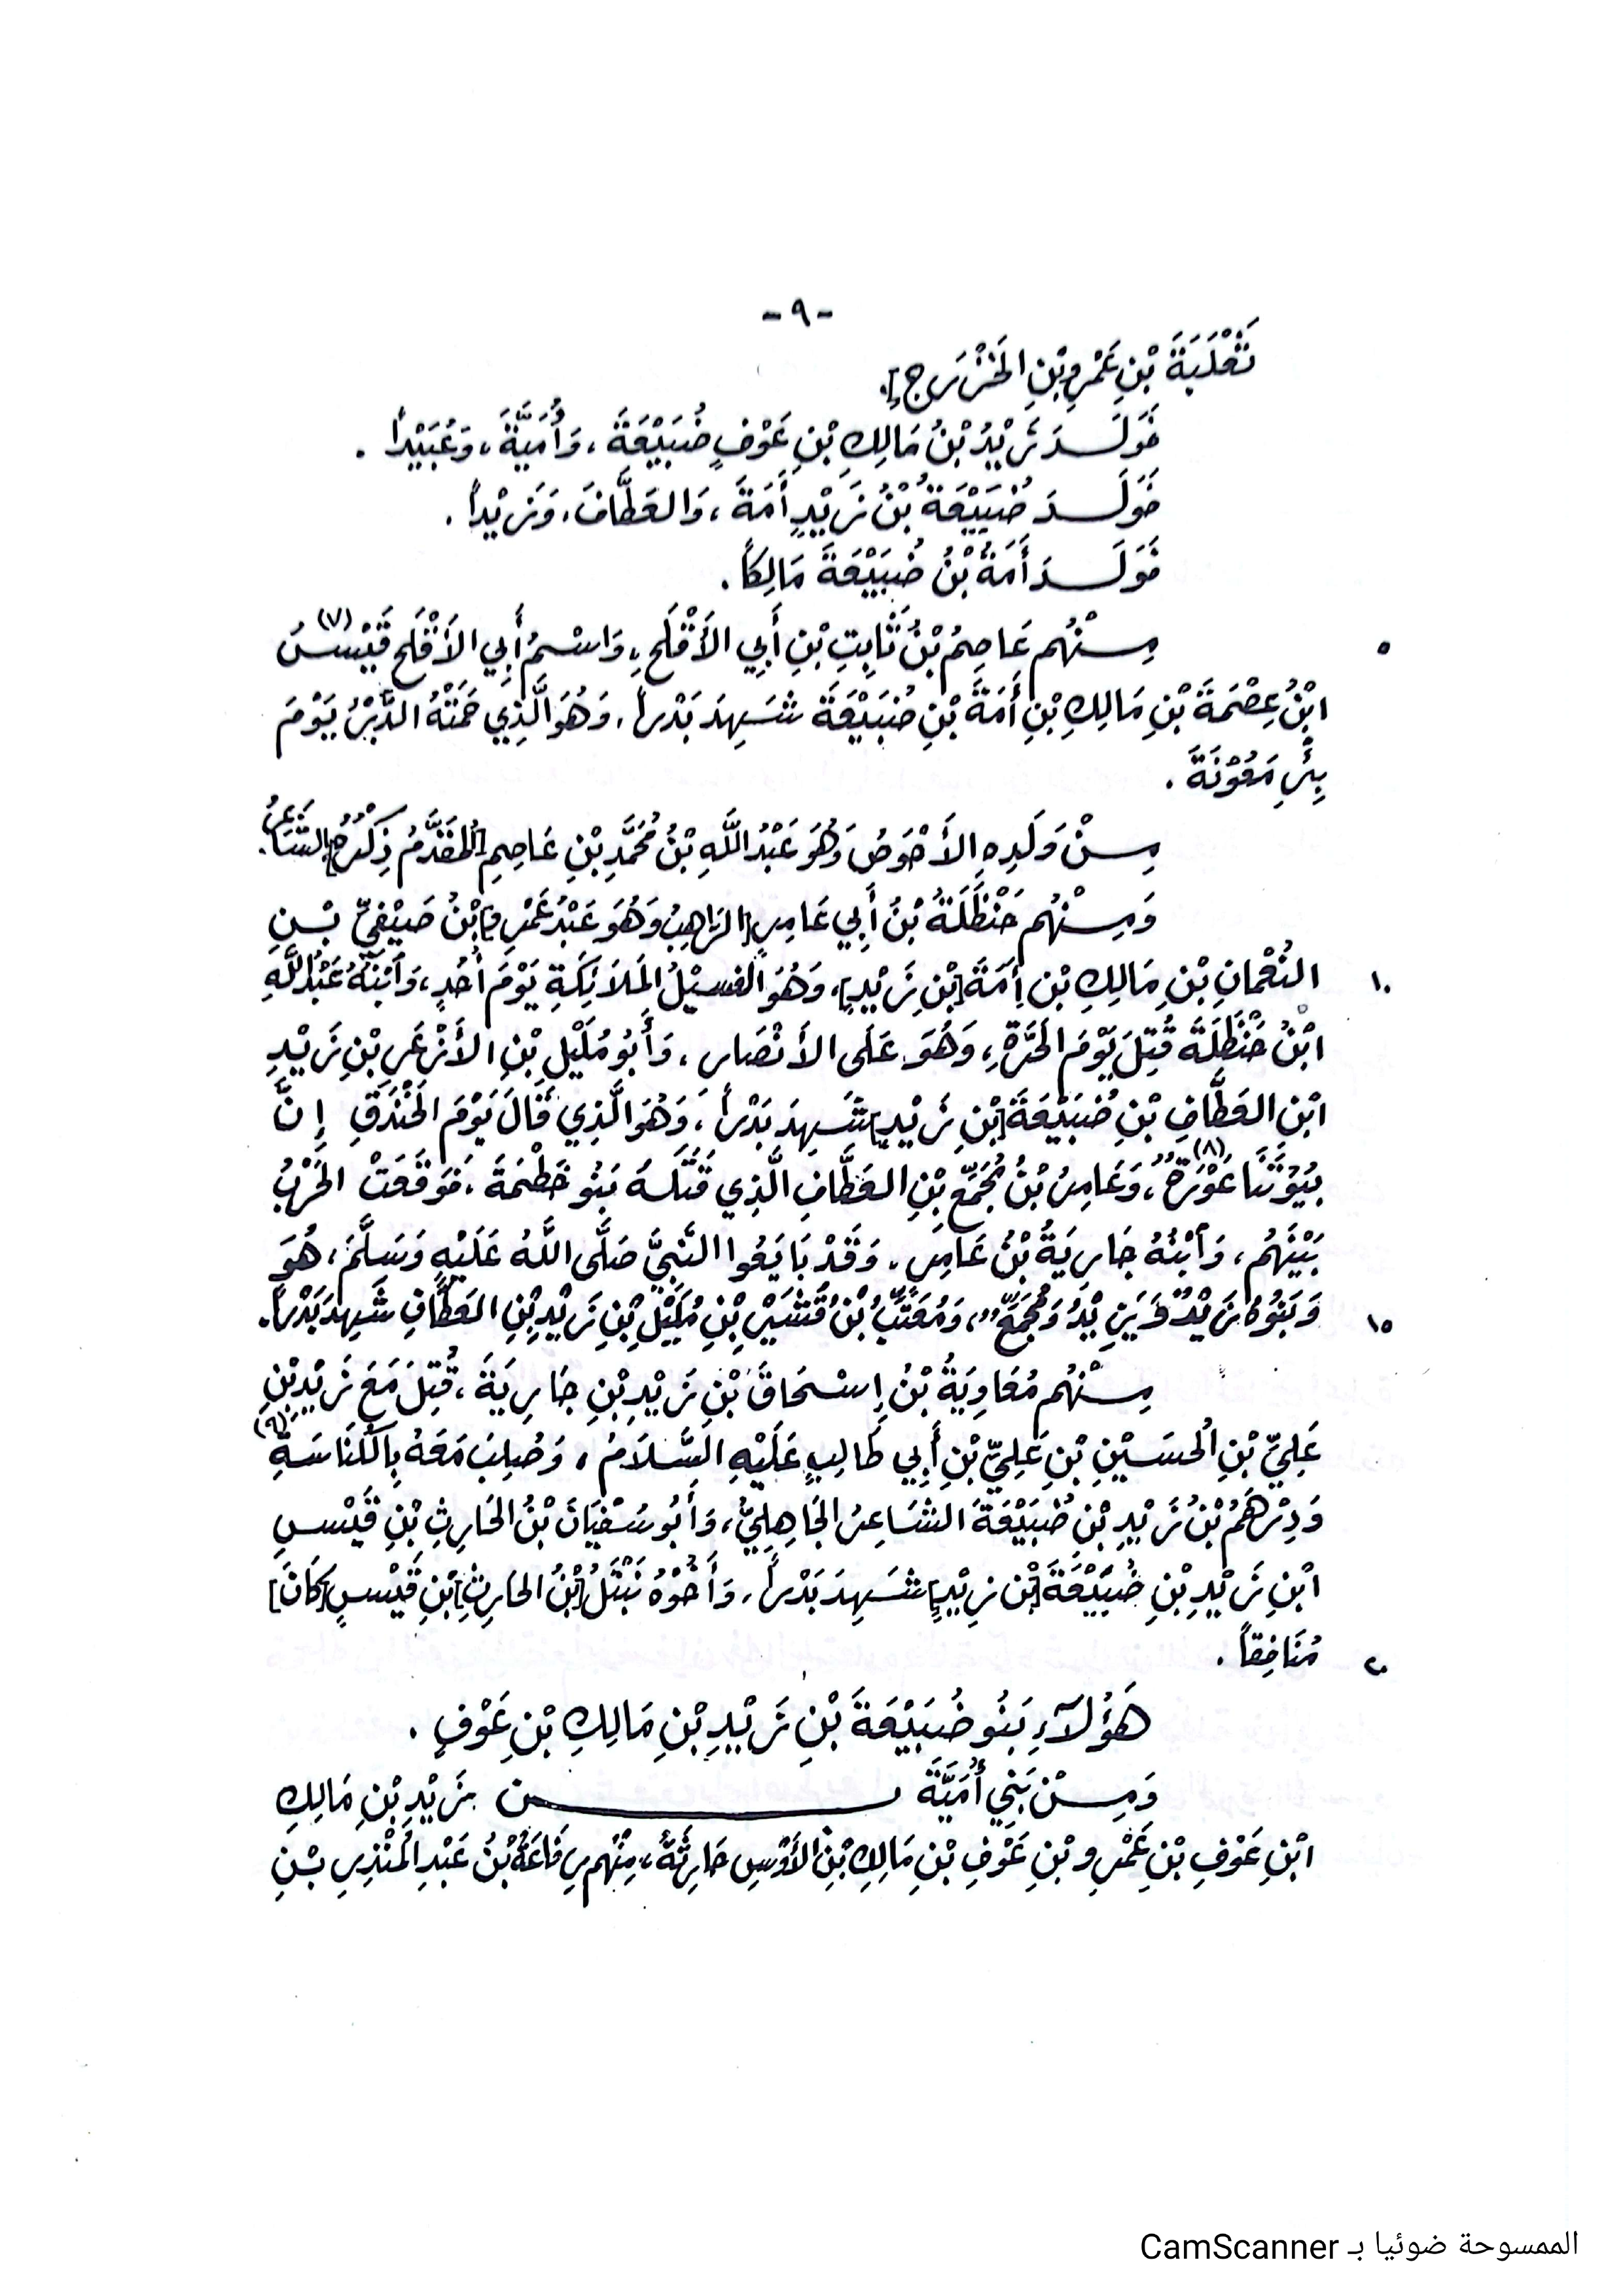 -٩-
ثَعْلَبَةَ بْنِ عَمْرِو بْنِ الخَزْرَجِ].
فَوَلَدَ زَيْدُ بْنُ مَالِكِ بْنِ عَوْفٍ ضُبَيْعَةَ، وَأُمَيَّةَ، وَعُبَيْداً.
فَوَلَدَ ضُبَيْعَةُ بْنُ زَيْدٍ أَمَةَ، وَالعَطَّافَ، وَزَيْداً.
فَوَلَدَ أَمَةُ بْنُ ضُبَيْعَةَ مَالِكاً.
٥ مِنْهُم عَاصِمُ بْنُ ثَابِتِ بْنِ أَبِي الأَقْلَحِ، وَاسْمُ أَبِي الأَقْلَحِ قَيْسُ (٧)
ابْنُ عِصْمَةَ بْنِ مَالِكِ بْنِ أَمَةَ بْنِ ضُبَيْعَةَ شَهِدَ بَدْراً، وَهُوَ الَّذِي حَمَتْهُ الدَّبْرُ يَوْمَ
بِئْرِ مَعُوْنَةَ.
مِنْ وَلَدِهِ الأَحْوَصُ وَهُوَ عَبْدُ اللَّهِ بْنُ مُحَمَّدِ بْنِ عَاصِمِ [المُقَدَّمُ ذِكْرُهُ] الشَّاعِرُ.
وَمِنْهُم حَنْظَلَةُ بْنُ أَبِي عَامِرٍ [الرَّاهِبُ وَهُوَ عَبْدُ عَمْرِو] بْنُ صَيْفِيِّ بْنِ
١٠ النُعْمَانِ بْنِ مَالِكِ بْنِ أَمَةَ [بْنِ زَيْدٍ]، وَهُوَ الغَسِيْلُ المَلَائِكَةِ يَوْمَ أُحُدٍ، وَابْنُهُ عَبْدُ اللَّهِ
ابْنُ حَنْظَلَةَ قُتِلَ يَوْمَ الحَرَّةِ، وَهُوَ عَلَى الأَنْصَارِ، وَأَبُو مُلَيْلِ بْنِ الأَزْعَرِ بْنِ زَيْدِ
ابْنِ العَطَّافِ بْنِ ضُبَيْعَةَ [بْنِ زَيْدٍ] شَهِدَ بَدْراً، وَهُوَ الَّذِي قَالَ يَوْمَ الخَنْدَقِ إِنَّ
بُيُوْتَنَا عَوْرَةٌ (٨)، وَعَامِرُ بْنُ مُجَمِّعِ بْنِ العَطَّافِ الَّذِي قَتَلَهُ بَنُو خَطْمَةَ، فَوَقَعَتْ الحَرْبُ
بَيْنَهُم، وَابْنُهُ جَارِيَةُ بْنُ عَامِرٍ، وَقَدْ بَايَعُوا النَّبِيَّ صَلَّى اللَّهُ عَلَيْهِ وَسَلَّمَ، هُوَ
١٥ وَبَنُوْهُ زَيْدٌ وَيَزِيْدُ وَمُجَمِّعٌ، وَمُعَتِّبُ بْنُ قُشَيْرِ بْنِ مُلَيْلِ بْنِ زَيْدِ بْنِ العَطَّافِ شَهِدَ بَدْراً.
مِنْهُم مُعَاوِيَةُ بْنُ إِسْحَاقَ بْنِ زَيْدِ بْنِ جَارِيَةَ، قُتِلَ مَعَ زَيْدِ بْنِ
عَلِيِّ بْنِ الحُسَيْنِ بْنِ عَلِيِّ بْنِ أَبِي طَالِبٍ عَلَيْهِ السَّلَامُ، وَصُلِبَ مَعَهُ بِالكُنَاسَةِ (٩)
وَدِرْهَمُ بْنُ زَيْدِ بْنِ ضُبَيْعَةَ الشَّاعِرُ الجَاهِلِيُّ، وَأَبُو سُفْيَانَ بْنُ الحَارِثِ بْنِ قَيْسِ
ابْنِ زَيْدِ بْنِ ضُبَيْعَةَ [بْنِ زَيْدٍ] شَهِدَ بَدْراً، وَأَخُوْهُ نَبْتَلُ [بْنُ الحَارِثِ] بْنِ قَيْسٍ [كَانَ]
٢٠ مُنَافِقاً.
هَؤُلَآءِ بَنُو ضُبَيْعَةَ بْنِ زَيْدِ بْنِ مَالِكِ بْنِ عَوْفٍ.
وَمِنْ بَنِي أُمَيَّةَ بْنِ زَيْدِ بْنِ مَالِكِ
ابْنِ عَوْفِ بْنِ عَمْرِو بْنِ عَوْفِ بْنِ مَالِكِ بْنِ الأَوْسِ حَارِثَةُ، مِنْهُم رِفَاعَةُ بْنُ عَبْدِ المُنْذِرِ بْنِ
الممسوحة ضوئيا بـ CamScanner